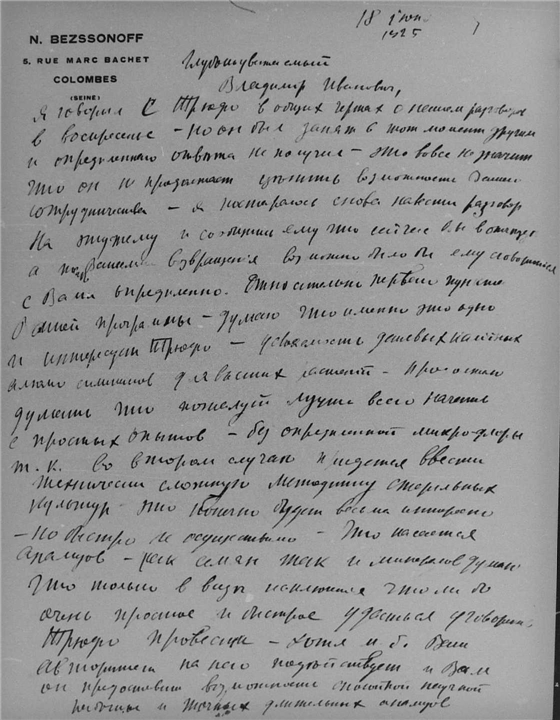 18 июн
1925
N. BEZSSONOFF
5, RUE MARC BACHET
COLOMBES
(SEINE)
Глубокоуважаемый
Владимир Иванович,
Я говорил с Трюфо в общих чертах о нашем разговоре
в воскресенье – но он был занят в тот момент другим
и определенного ответа не получил – это вовсе не значит
что он не продолжает ценить возможности Вашего
сотрудничества – я постараюсь снова навести разговор
на эту тему и сообщил ему что сейчас Вы в
а по Вашем возвращения возможно было бы ему сговориться
с Вами определенно. Относительно первого пункта
Вашей программы – думаю что именно это одно
и интересует Трюфо – усвояемость дешевых калийных
алюмо силикатов для высших растений –
думать что пожалуй лучше всего начать
с простых опытов – без определенной микрофлоры
т. к. во втором случае придется ввести
технически сложную методику стерильных
культур – это конечно будет весьма интересно
– но быстро не осуществимо – Что касается
анализов – как семян так и минералов думаю
что только в виде исключения что либо
очень простое и быстрое удастся уговорить
Трюфо провести – хотя м. б. Ваш
авторитет на него подействует и Вам
он предоставит возможность спокойной научной
работы и точных длительных анализов